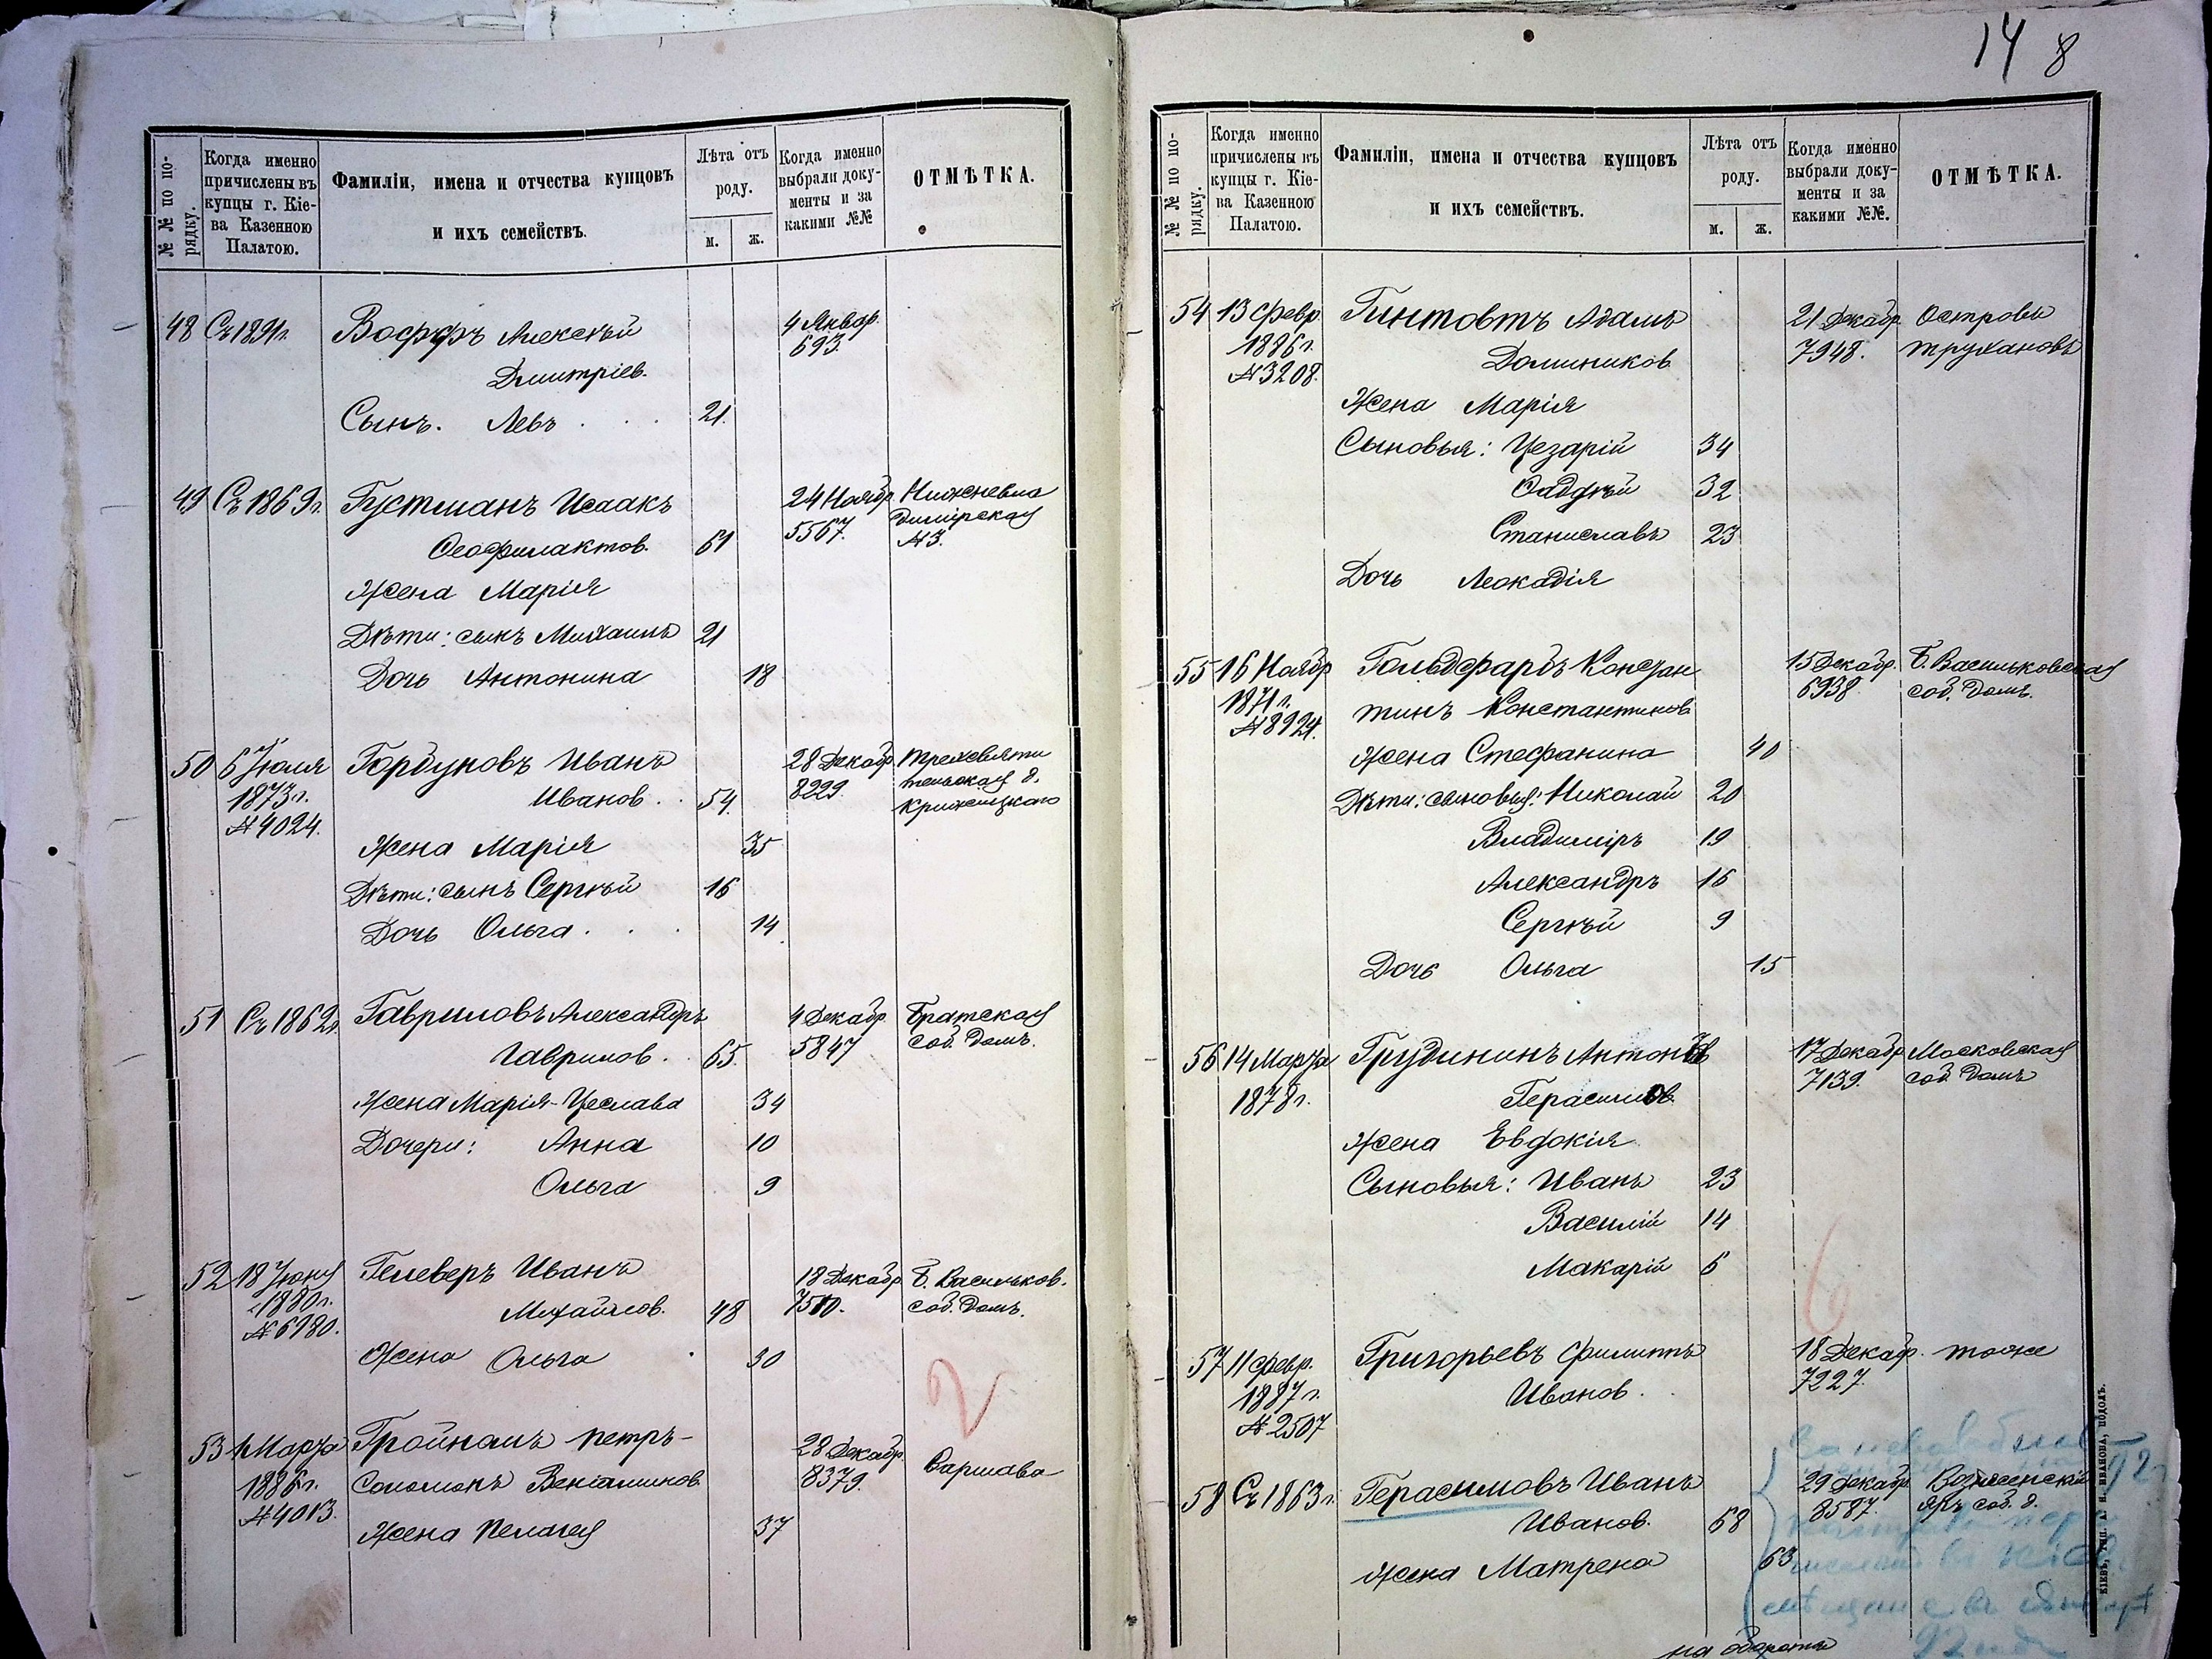 14 8
№ № по по-
рядку.
Когда именно
причислены въ
купцы г. Кіе-
ва Казенною
Палатою.
Фамиліи, имена и отчества купцовъ
и ихъ семействъ.
Лѣта отъ
роду.
м. ж.
Когда именно
выбрали доку-
менты и за
какими №№
ОТМѢТКА.
48 Съ 1891г. Алексѣй 4 Январ.
Дмитріев. 693.
Сынъ. Левъ 21.
49 Съ 1869г. Густманъ Исаакъ 24 Ноябр. Нижневла
Феофилактов. 61 5567. димірская
№3.
Жена Марія
Дѣти: сынъ Михаилъ 21
Дочь Антонина 18
50 6 Іюля Горбуновъ Иванъ 28 Декабр. Трехсвяти
1873г. Иванов. 54. 8229. тельская д.
№4024. Крижицкаго
Жена Марія 35
Дѣти: сынъ Сергѣй 16
Дочь Ольга 14
51 Съ 1862г. Гавриловъ Александръ 4 Декабр. Братская
Гаврилов. 65. 5847 соб. домъ.
Жена Марія-Цеслава 34
Дочери: Анна 10
Ольга 9
52 18 Іюня Гелеверъ Иванъ 18 Декабр. Б. Васильков.
1880г. Михайлов. 48 7510. соб. домъ.
№6980.
Жена Ольга 30
2
53 Марта Гройнамъ Петръ- 28 Декабр. Варшава
1886г. Соломонъ Веніаминов. 8379.
№4013.
Жена Пелагея 37
№ № по по-
рядку.
Когда именно
причислены въ
купцы г. Кіе-
ва Казенною
Палатою.
Фамиліи, имена и отчества купцовъ
и ихъ семействъ.
Лѣта отъ
роду.
м. ж.
Когда именно
выбрали доку-
менты и за
какими №№.
ОТМѢТКА.
54 13 Февр. Гинтовтъ Адамъ 21 Декабр. Островъ
1886г. Домиников. 7948. Трухановъ
№3208.
Жена Марія
Сыновья: Цезарій 34
Фаддѣй 32
Станиславъ 23
Дочь Леокадія
55 16 Ноябр. Гольдфарбъ Констан 15 Декабр. Б. Васильковская
1871г. тинъ Константинов. 6938. соб. домъ.
№8924.
Жена Стефанина 40
Дѣти: сыновья: Николай 20
Владиміръ 19
Александръ 16
Сергѣй 9
Дочь Ольга 15
56 14 Марта Грудининъ Антонъ 17 Декабр. Московская
1878г. Герасимов. 7139. соб. домъ
Жена Евдокія
Сыновья: Иванъ 23
Василій 14
Макарій 6
6
57 11 Февр. Григорьевъ Филиппъ 18 Декабр. тоже
1887г. Иванов. 7227.
№2507
58 Съ 1863г. Герасимовъ Иванъ 29 Декабр. Вознесенскій
Иванов. 68 8587. яръ соб. д.
Жена Матрена 63
въ
на оборотѣ
КІЕВЪ, ТИП. А. Н. ИВАНОВА, ПОДОЛЪ.